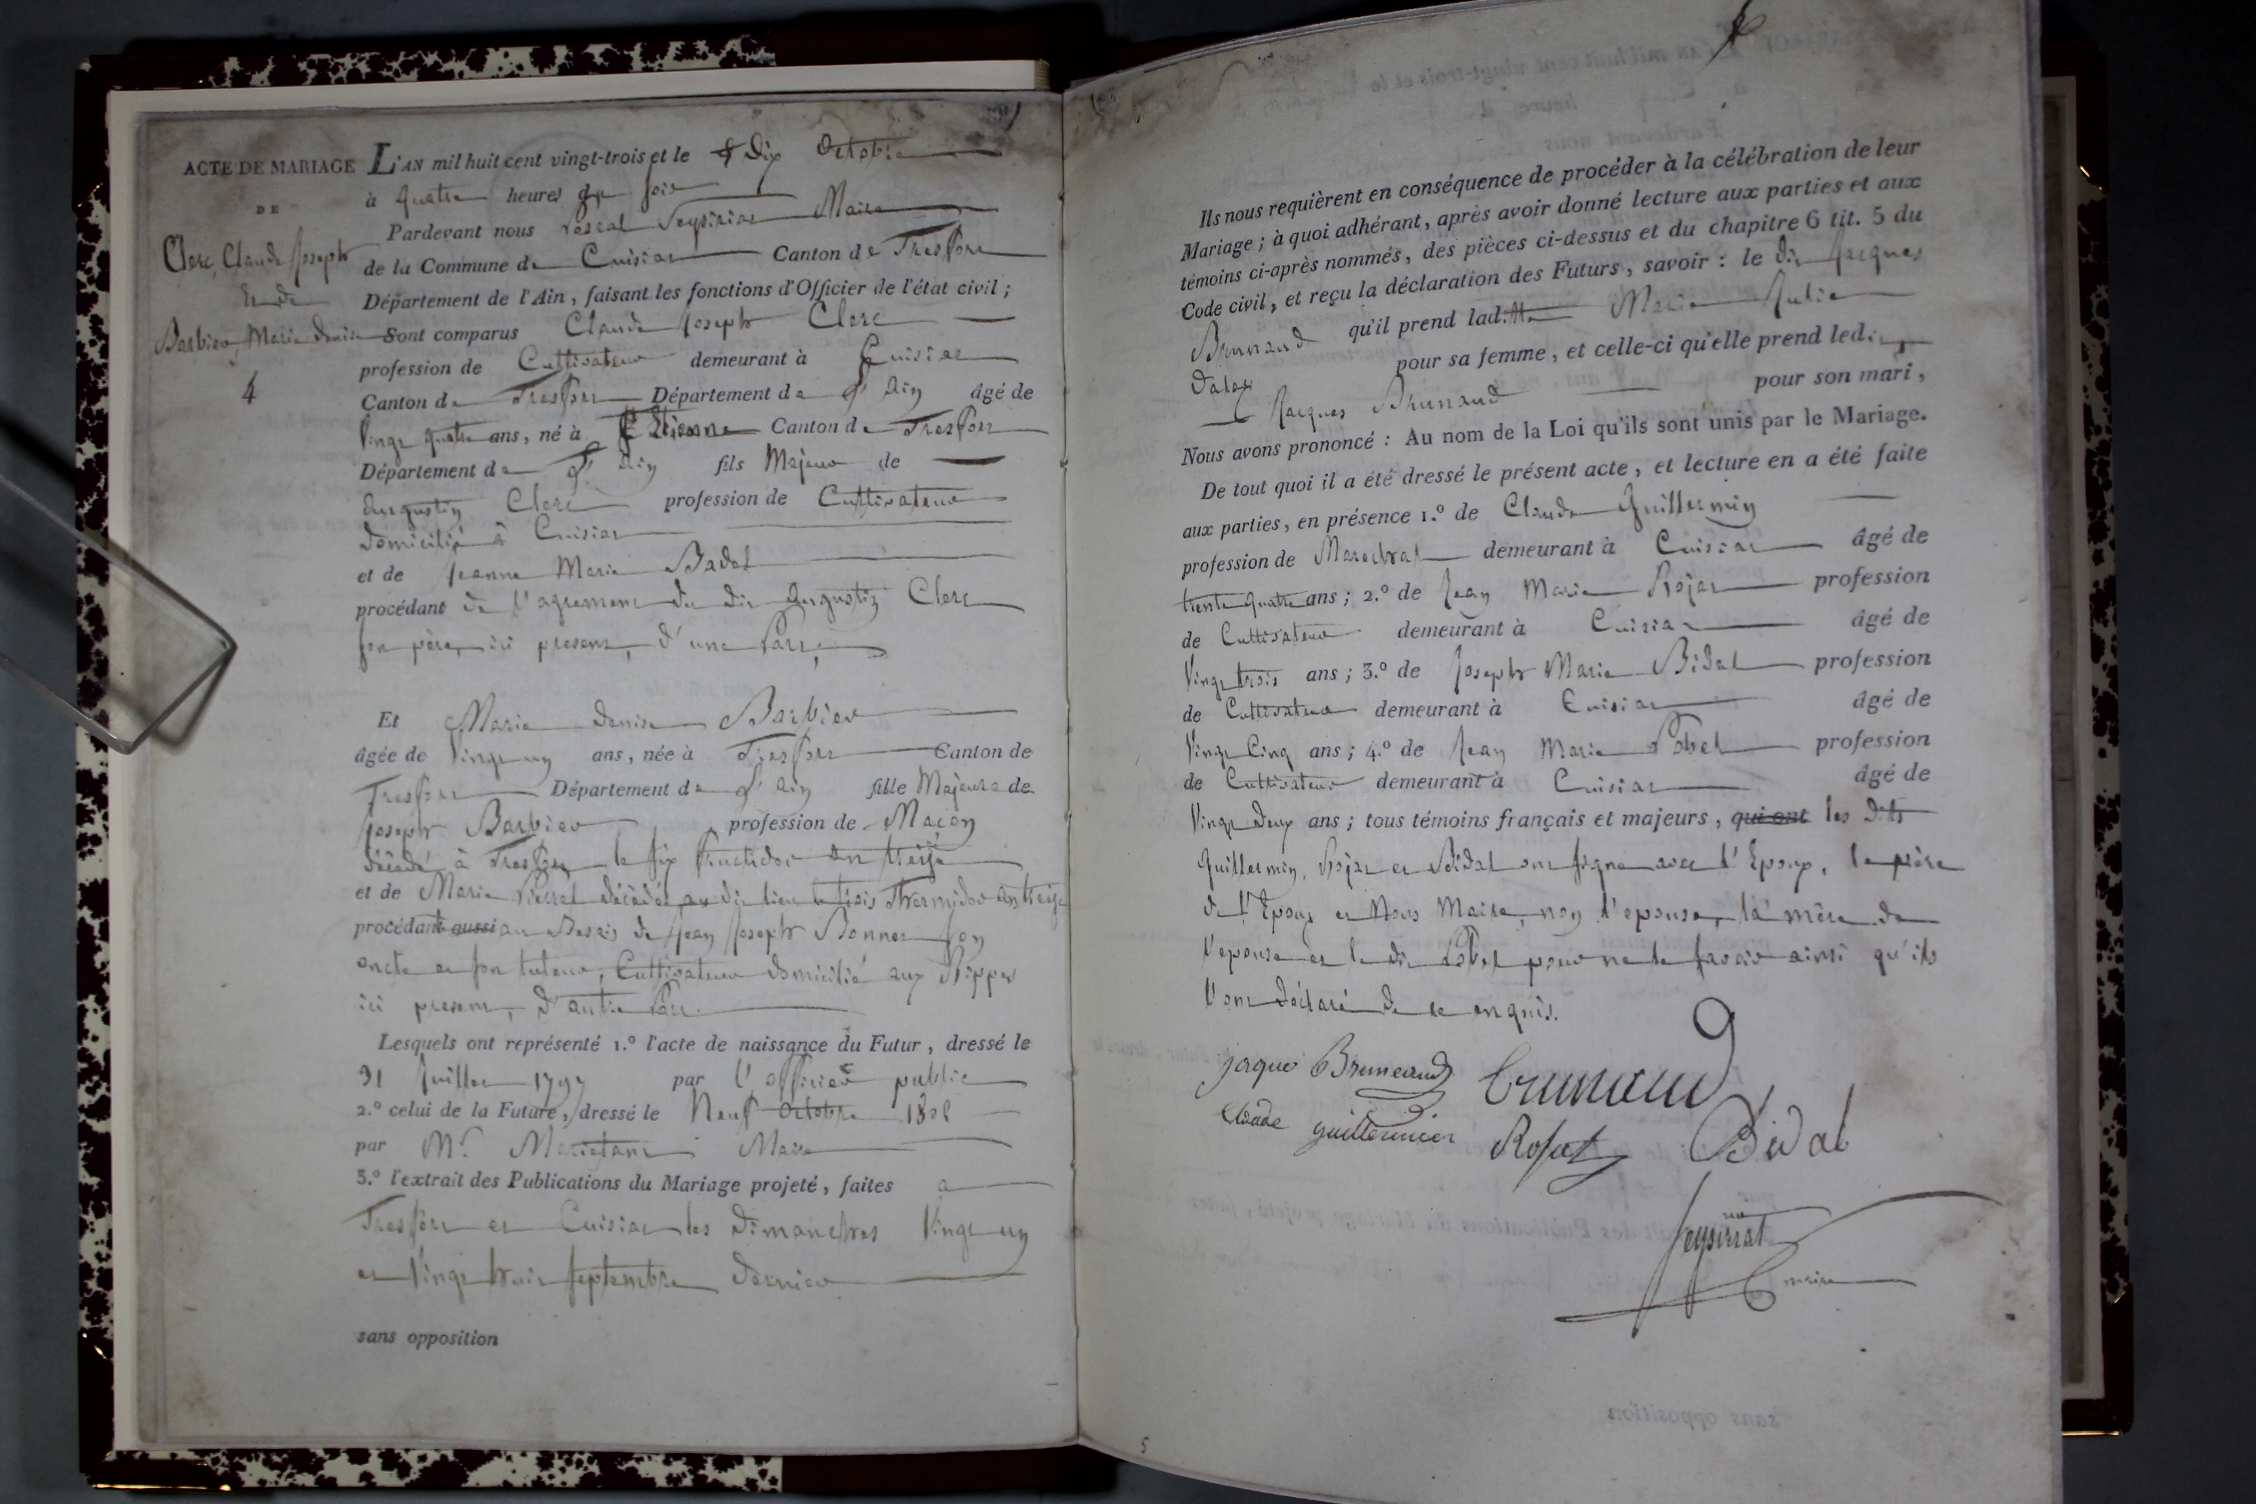 ACTE DE MARIAGE
DE
Clerc, Claude Joseph
Et de
Barbier, Marie denise
4
L'AN mil huit cent vingt-trois et le dix Octobre
à quatre heures du soir
Pardevant nous Pascal Teyssirat Maire
de la Commune de Cuisiat Canton de Treffort
Département de l'Ain, faisant les fonctions d'Officier de l'état civil ;
Sont comparus Claude Joseph Clerc
profession de Cultivateur demeurant à Cuisiat
Canton de Treffort Département de l'Ain âgé de
Vingt quatre ans, né à St Etienne Canton de Treffort
Département de l'Ain fils Majeur de
Augustin Clerc profession de Cultivateur
domicilié à Cuisiat
et de Jeanne Marie Badet
procédant de l'agrement du dit Augustin Clerc
son père, ici present, d'une Part,
Et Marie denise Barbier
âgée de Vingt un ans, née à Treffort Canton de
Treffort Département de l'Ain fille Majeure de
Joseph Barbier profession de Maçon
décédé à Treffort le six fructidor an treize
et de Marie décédée au dit lieu le trois Thermidor an treize
procédant aussi au de Jean Joseph Bonnet son
oncle et son tuteur, Cultivateur domicilié aux
ici present, d'autre Part.
Lesquels ont représenté 1.º l'acte de naissance du Futur, dressé le
31 Juillet 1797 par l'officier public
2.º celui de la Future, dressé le Neuf Octobre
par Mr. Maire
3.º l'extrait des Publications du Mariage projeté, faites a
Treffort et Cuisiat les Dimanches Vingt un
et Vingt huit septembre dernier
sans opposition
Ils nous requièrent en conséquence de procéder à la célébration de leur
Mariage ; à quoi adhérant, après avoir donné lecture aux parties et aux
témoins ci-après nommés, des pièces ci-dessus et du chapitre 6 tit. 5 du
Code civil, et reçu la déclaration des Futurs, savoir : le dit Jacques
Brunaud qu'il prend lad.te Marie Julie
Dalex pour sa femme, et celle-ci qu'elle prend led.it
Jacques Brunaud pour son mari,
Nous avons prononcé : Au nom de la Loi qu'ils sont unis par le Mariage.
De tout quoi il a été dressé le présent acte, et lecture en a été faite
aux parties, en présence 1.º de Claude Guillermin
profession de Marechal demeurant à Cuisiat âgé de
trente quatre ans ; 2.º de Jean Marie Rojat profession
de Cultivateur demeurant à Cuisiat âgé de
Vingt trois ans ; 3.º de Joseph Marie Bidal profession
de Cultivateur demeurant à Cuisiat âgé de
Vingt Cinq ans ; 4.º de Jean Marie Pobel profession
de Cultivateur demeurant à Cuisiat âgé de
Vingt deux ans ; tous témoins français et majeurs, qui ont les dits
Guillermin, Rojat et Bidal ont signé avec l'Epoux, le père
de l'Epoux et Nous Maire, non l'epouse, la mère de
l'epouse et le dit Pobel pour ne le savoir ainsi qu'ils
l'ont déclaré de ce enquis.
jaque Bruneaud brunaud
Claude guillermin Rojat Bidal
Teyssirat
maire
5
sans opposition